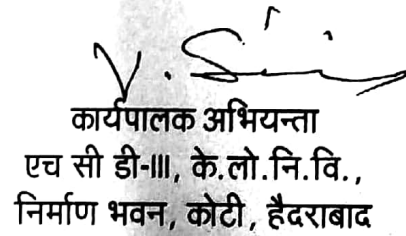 कार्यपालक अभियन्ता
एच सी डी-III, के.लो.नि.वि.,
निर्माण भवन, कोटी, हैदराबाद